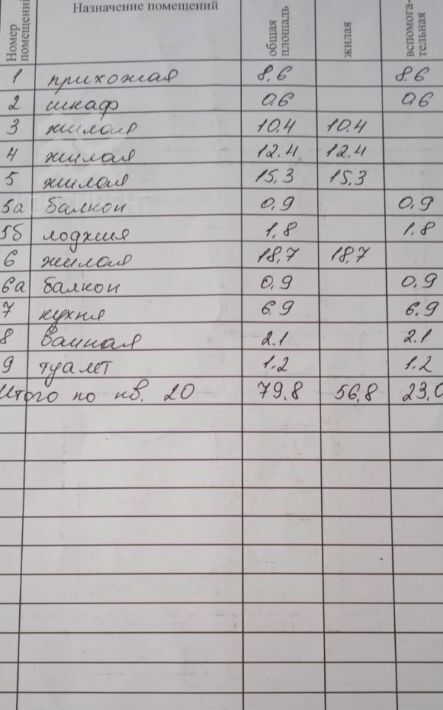 Номер помещения Назначение помещений общая площадь жилая вспомога- тельная
1 прихожая 8.6 8.6
2 шкаф 0.6 0.6
3 жилая 10.4 10.4
4 жилая 12.4 12.4
5 жилая 15.3 15.3
5а балкон 0.9 0.9
5б лоджия 1.8 1.8
6 жилая 18.7 18.7
6а балкон 0.9 0.9
7 кухня 6.9 6.9
8 ванная 2.1 2.1
9 туалет 1.2 1.2
Итого по кв. 20 79,8 56,8 23,0